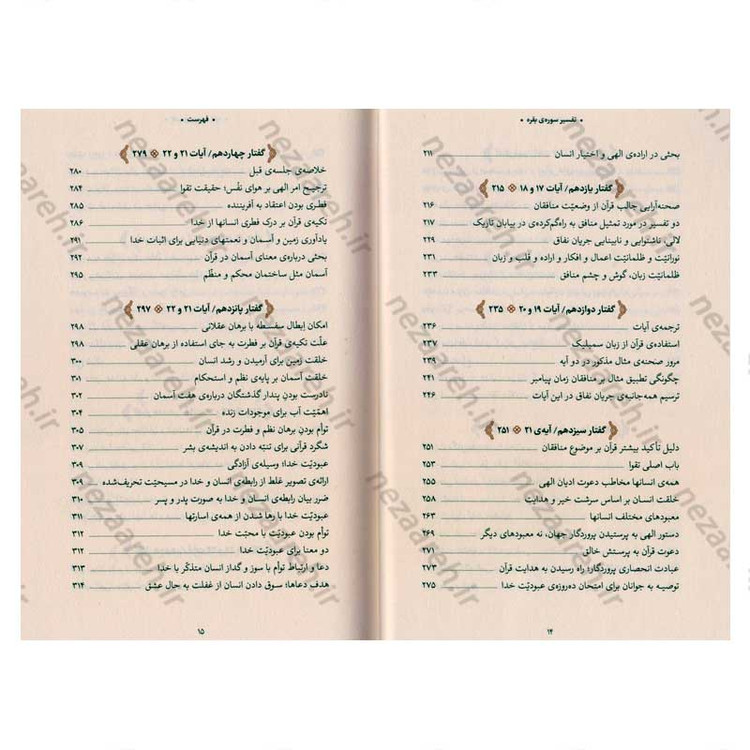 • تفسیر سوره‌ی بقره •
بحثی در اراده‌ی الهی و اختیار انسان ۲۱۱
گفتار یازدهم/ آیات ۱۷ و ۱۸ ۲۱۵
صحنه‌آرایی جالب قرآن از وضعیّت منافقان ۲۱۶
دو تفسیر در مورد تمثیل منافق به راه‌گم‌کرده‌ی در بیابان تاریک ۲۱۷
لالی، ناشنوایی و نابینایی جریان نفاق ۲۲۹
نورانیّت و ظلمانیّت اعمال و افکار و اراده و قلب و زبان ۲۳۱
ظلمانیّت زبان، گوش و چشم منافق ۲۳۳
گفتار دوازدهم/ آیات ۱۹ و ۲۰ ۲۳۵
ترجمه‌ی آیات ۲۳۶
استفاده‌ی قرآن از زبان سمبلیک ۲۳۷
مرور صحنه‌ی مثال مذکور در دو آیه ۲۳۹
چگونگی تطبیق مثال بر منافقان زمان پیامبر ۲۴۱
ترسیم همه‌جانبه‌ی جریان نفاق در این آیات ۲۴۶
گفتار سیزدهم/ آیه‌ی ۲۱ ۲۵۱
دلیل تأکید بیشتر قرآن بر موضوع منافقان ۲۵۱
باب اصلی تقوا ۲۵۳
همه‌ی انسانها مخاطب دعوت ادیان الهی ۲۵۵
خلقت انسان بر اساس سرشت خیر و هدایت ۲۵۸
معبودهای مختلف انسانها ۲۶۳
دستور الهی به پرستیدن پروردگار جهان، نه معبودهای دیگر ۲۶۹
دعوت قرآن به پرستش خالق ۲۷۱
عبادت انحصاری پروردگار؛ راه رسیدن به هدایت قرآن ۲۷۳
توصیه به جوانان برای امتحان ده‌روزه‌ی عبودیّت خدا ۲۷۵
۱۴
• فهرست •
گفتار چهاردهم/ آیات ۲۱ و ۲۲ ۲۷۹
خلاصه‌ی جلسه‌ی قبل ۲۸۰
ترجیح امر الهی بر هوای نفْس؛ حقیقت تقوا ۲۸۴
فطری بودن اعتقاد به آفریننده ۲۸۵
تکیه‌ی قرآن بر درک فطری انسانها از خدا ۲۸۶
یادآوری زمین و آسمان و نعمتهای دنیایی برای اثبات خدا ۲۹۱
بحثی درباره‌ی معنای آسمان در قرآن ۲۹۲
آسمان مثل ساختمان محکم و منظّم ۲۹۵
گفتار پانزدهم/ آیات ۲۱ و ۲۲ ۲۹۷
امکان اِبطال سفسطه با برهان عقلانی ۲۹۸
علّت تکیه‌ی قرآن بر فطرت به جای استفاده از برهان عقلی ۲۹۸
خلقت زمین برای آرمیدن و رشد انسان ۳۰۰
خلقت آسمان بر پایه‌ی نظم و استحکام ۳۰۱
نادرست بودنِ پندار گذشتگان درباره‌ی هفت آسمان ۳۰۲
اهمّیّت آب برای موجودات زنده ۳۰۴
توأم بودنِ برهان نظم و فطرت در قرآن ۳۰۴
شگرد قرآنی برای تنبّه دادن به اندیشه‌ی بشر ۳۰۷
عبودیّت خدا؛ وسیله‌ی آزادگی ۳۰۹
ارائه‌ی تصویر غلط از رابطه‌ی انسان و خدا در مسیحیّت تحریف‌شده ۳۰۹
ضرر بیان رابطه‌ی انسان و خدا به صورت پدر و پسر ۳۱۰
عبودیّت خدا با رها شدن از همه‌ی اسارتها ۳۱۱
توأم بودن عبودیّت با محبّت خدا ۳۱۲
دو معنا برای عبودیّت خدا ۳۱۲
دعا و ارتباط توأم با سوز و گداز انسان متذکّر با خدا ۳۱۳
هدف دعاها؛ سوق دادن انسان از غفلت به حال عشق ۳۱۴
۱۵
nezaareh.ir